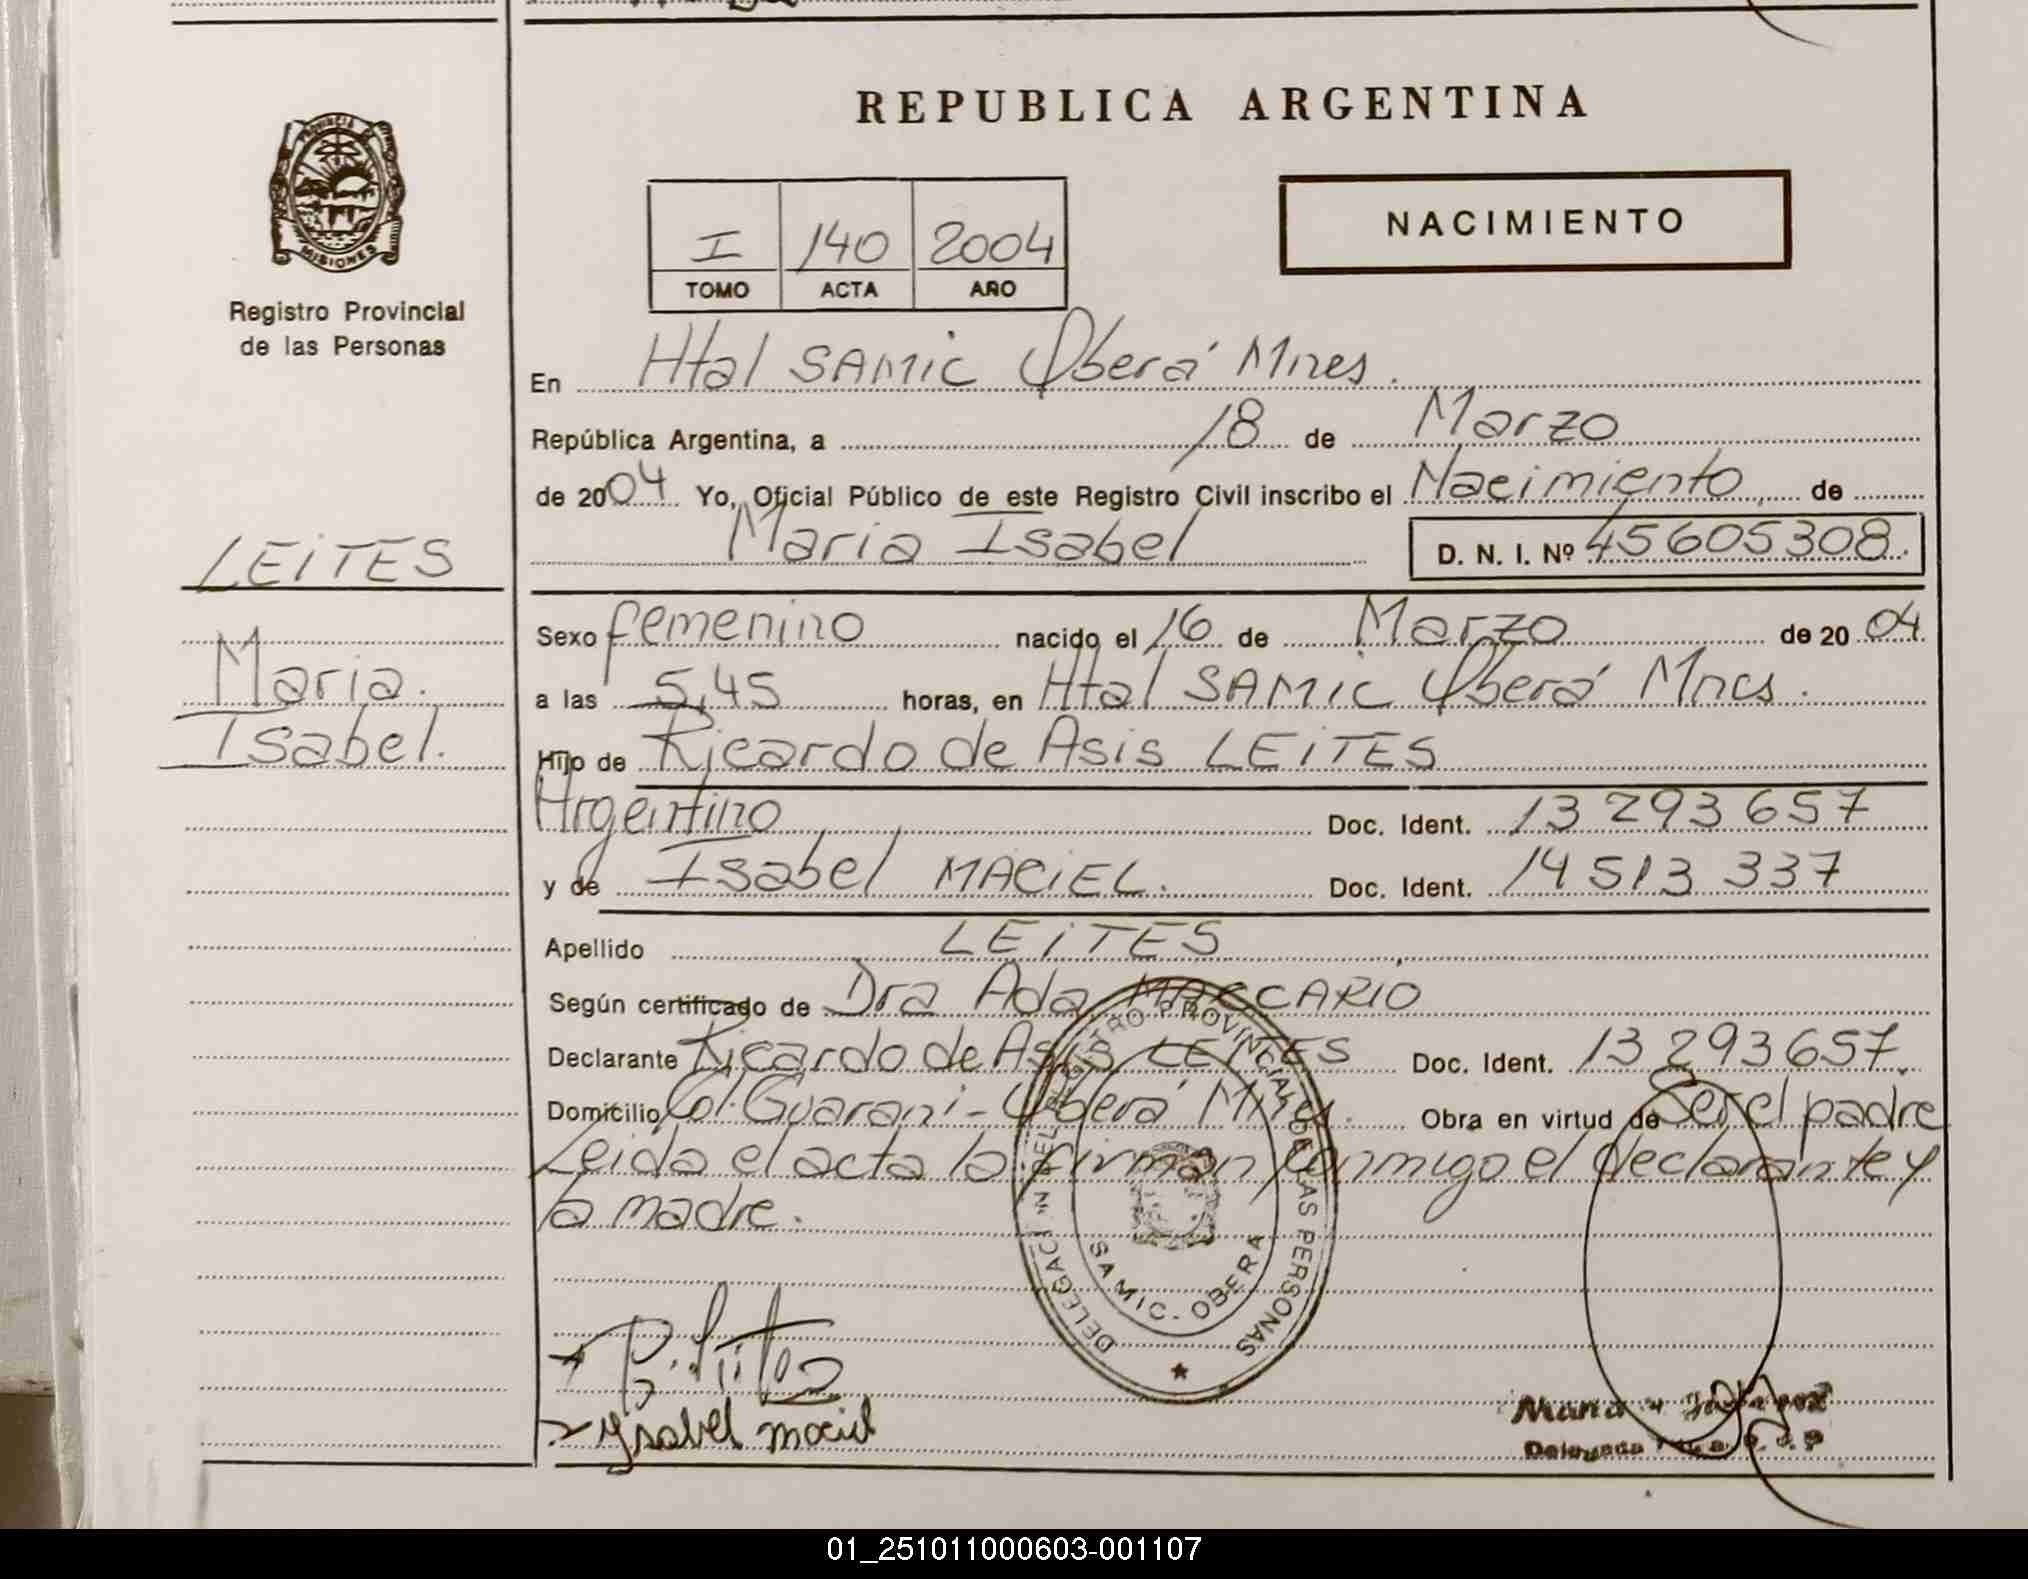 REPUBLICA ARGENTINA
PROVINCIA DE
MISIONES
Registro Provincial
de las Personas
I 140 2004
TOMO ACTA AÑO
NACIMIENTO
En Htal SAMIC Oberá Mnes.
República Argentina, a 18 de Marzo
de 2004 Yo, Oficial Público de este Registro Civil inscribo el Nacimiento de
Maria Isabel D. N. I. Nº 45605308.
LEITES
Maria.
Isabel.
Sexo femenino nacido el 16 de Marzo de 2004
a las 5,45 horas, en Htal SAMIC Oberá Mnes.
Hijo de Ricardo de Asis LEITES
Argentino Doc. Ident. 13 293 657
y de Isabel MACIEL. Doc. Ident. 14 513 337
Apellido LEITES
Según certificado de Dra Ada MACCARIO
Declarante Ricardo de Asis LEITES Doc. Ident. 13 293 657.
Domicilio Col. Guarani - Oberá Mnes. Obra en virtud de Ser el padre
Leida el acta la firman conmigo el declarante y
la madre.
DELEGACIÓN DEL REGISTRO PROVINCIAL DE LAS PERSONAS
SAMIC - OBERA
Ysabel maciel
Delegada
01_251011000603-001107